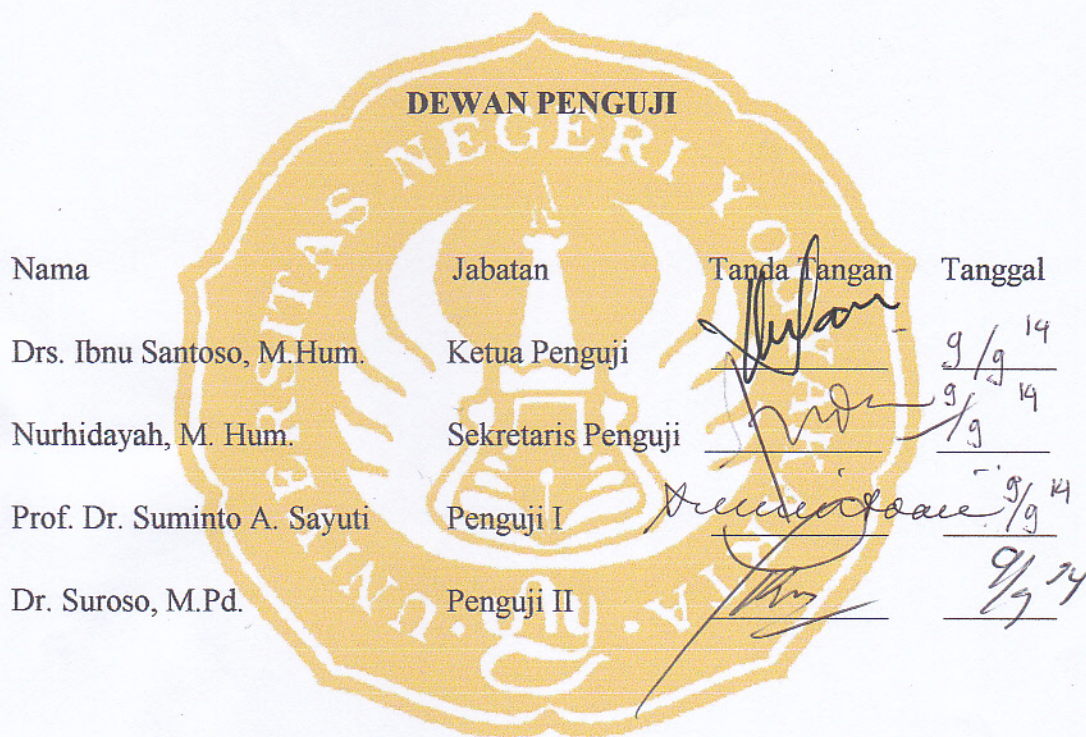 DEWAN PENGUJI
UNIVERSITAS NEGERI YOGYAKARTA
Nama Jabatan Tanda Tangan Tanggal
Drs. Ibnu Santoso, M.Hum. Ketua Penguji 9/9 14
Nurhidayah, M. Hum. Sekretaris Penguji 9/9 14
Prof. Dr. Suminto A. Sayuti Penguji I 9/9 14
Dr. Suroso, M.Pd. Penguji II 9/9 14